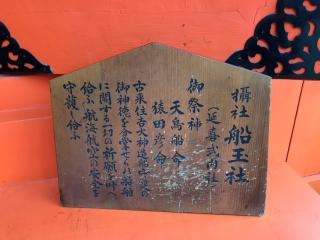 攝社 船玉社
(延喜式内社)
御祭神
天鳥船命
猿田彦命
古来住吉大神造船山遷の
御神徳を合掌せられ船舶
に関する一切の祈願を叶へ
給ふ航海航空の安全を
守護し給ふ